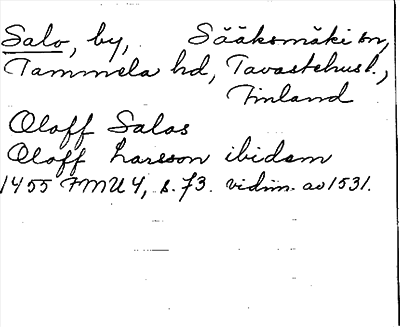 Salo, by, Sääksmäki sn,
Tammela hd, Tavastehus l.,
Finland
Oloff Salos
Oloff Larsson ibidem
1455 FMU 4, s. 73. vidim. av 1531.